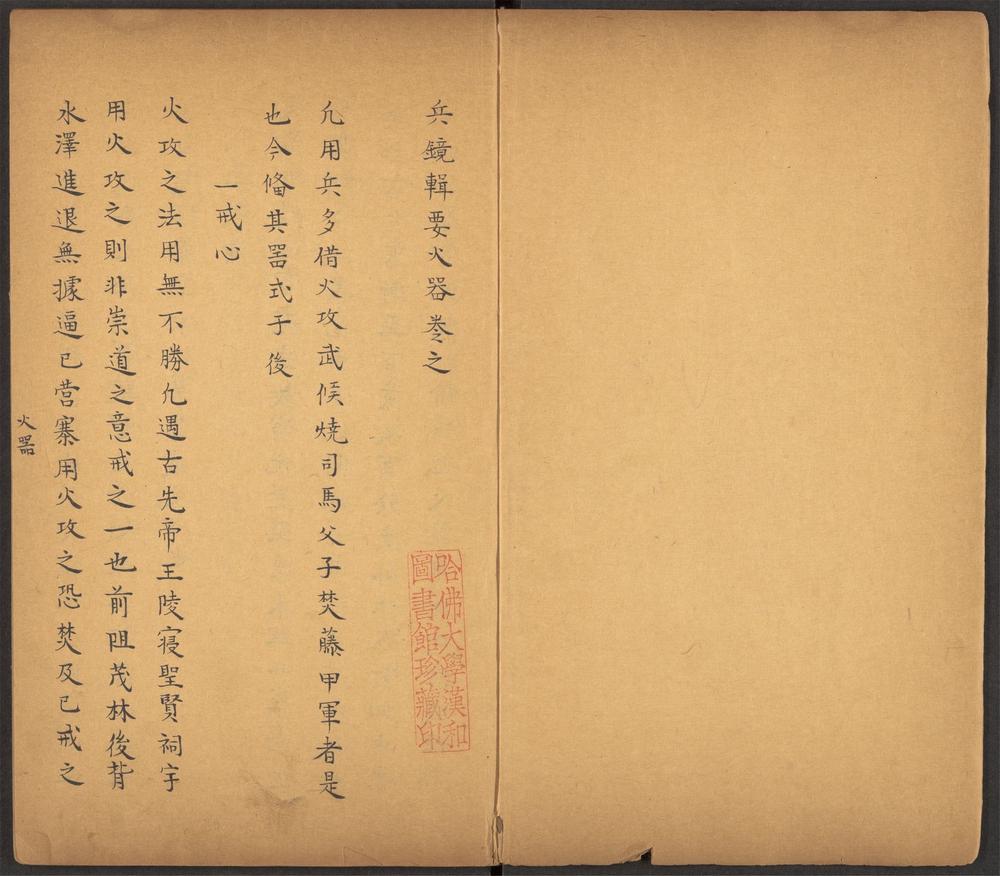 兵鏡輯要火器卷之
凢用兵多借火攻武侯燒司馬父子焚藤甲軍者是
也今俻其噐式于後
一戒心
火攻之法用無不勝凢遇古先帝王陵寝聖賢祠宇
用火攻之則非崇道之意戒之一也前阻茂林後背
水澤進退無據逼已营寨用火攻之恐焚及已戒之
火噐
哈佛大學漢和
圖書館珍藏印